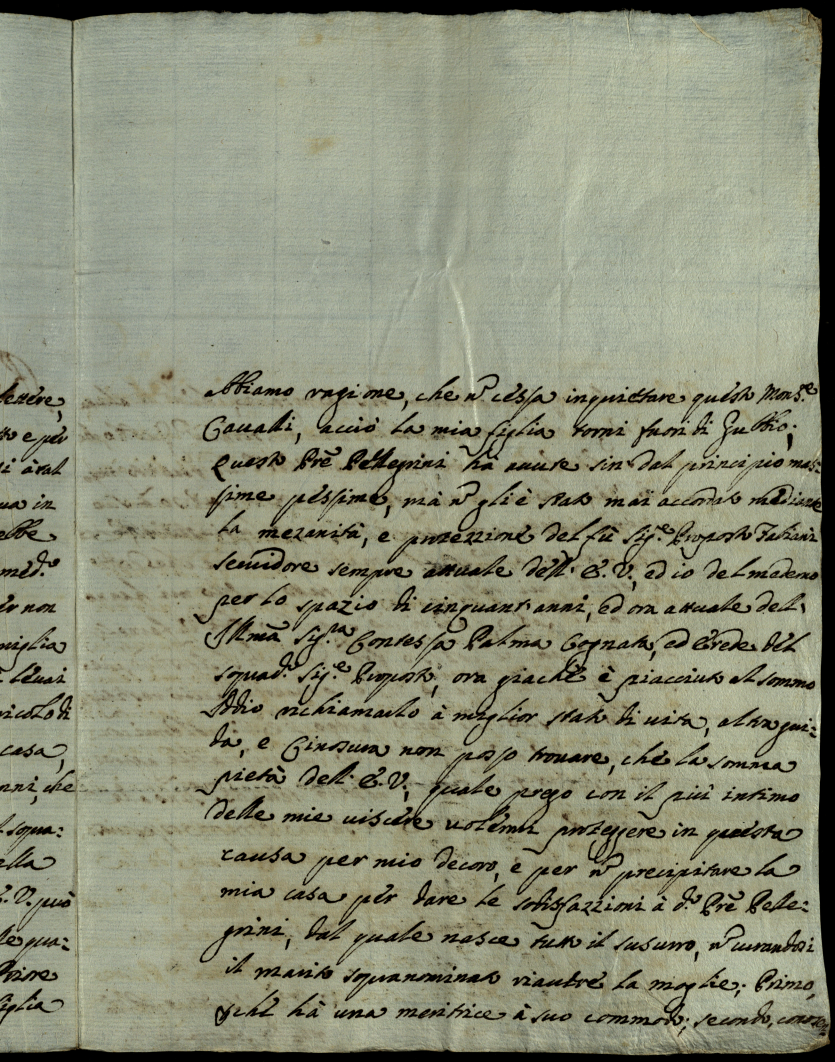 lettere,
e per
ua in
med.º
er non
miglia
casa,
anni, che
sopra:
ella
E. V. può
le qua:
Priore
figlia
Abbiamo ragione, che nº cessa inquiettare questo Mons.e
Cavalli, acciò la mia figlia torni fuori di Gubbio;
Questo Prē Pellegrini hà avute sin dal principio mas:
sime pessime, mà nº gli è stato mai accordato mediante
la mezanità, e protezzione del fù Sig.e Proposto Fabiani
servidore sempre attuale dell' E. V., ed io del medemo
per lo spazio di cinquant'anni, ed ora attuale dell'
Illmā Sig.ra Contessa Palma Cognata, ed Erede del
soprad.º Sig.e Proposto, ora giachè è piacciuto al sommo
Iddio richiamarlo à miglior stato di vita, altra gui:
da, e Cinosura non posso trovare, che la somma
pietà dell' E. V., quale prego con il più intimo
delle mie viscere volermi proteggere in questa
causa per mio decoro, e per nº precipitare la
mia casa per dare le sodisfazzioni à d.º Prē Pelle:
grini, dal quale nasce tutto il susurro, nº curandosi
il marito sopranominato riavere la moglie; Primo,
perchè hà una meritrice à suo commodo; secondo,